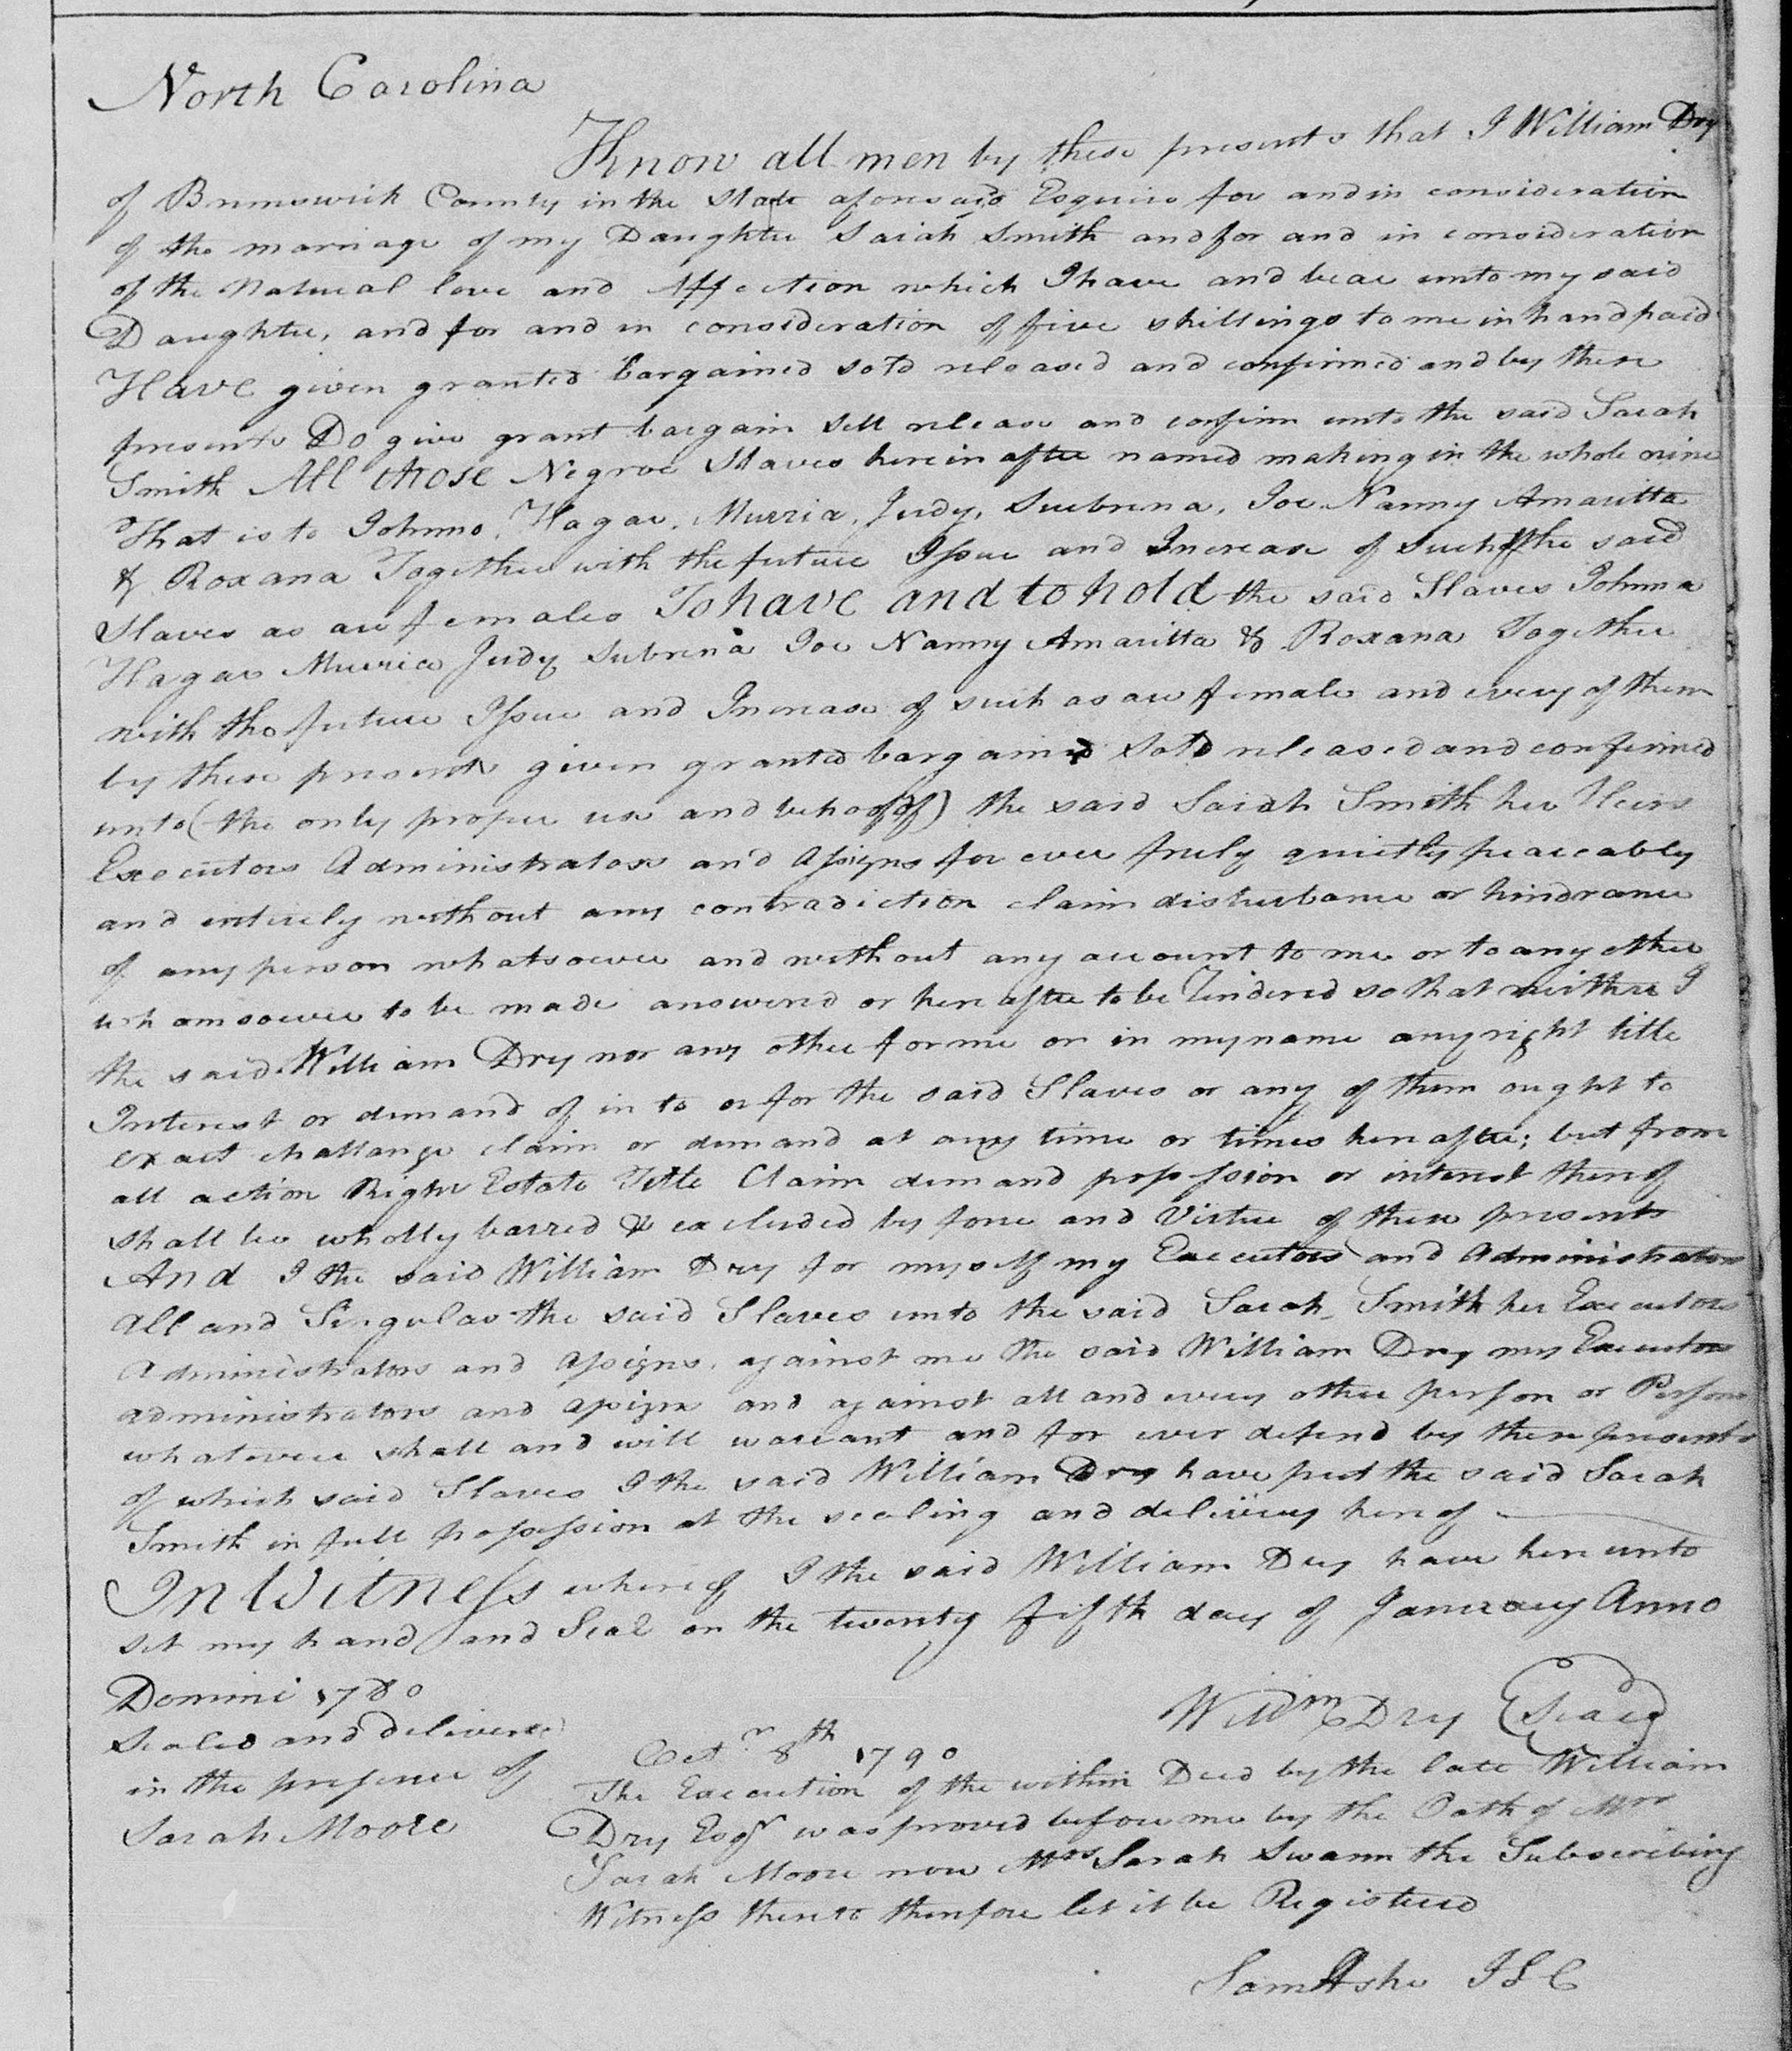 North Carolina
Know all men by these presents that I William Dry
of Brunswick County in the State aforesaid Esquire for and in consideration
of the marriage of my Daughter Sarah Smith and for and in consideration
of the Natural love and Affection which I have and bear unto my said
Daughter, and for and in consideration of five shillings to me in hand paid
Have given granted bargained sold released and confirmed and by these
presents Do give grant bargain sell release and confirm unto the said Sarah
Smith All those Negroe Slaves herein after named making in the whole nine
That is to Johnno, Hagar, Murria, Judy, Suebrina, Joe Nanny Amaritta
& Roxana Together with the future Issue and Increase of Such of the said
Slaves as are females To have and to hold the said Slaves Johnna
Hagar Murria Judy Subrina Joe Nanny Amaritta & Roxana Together
with the future Issue and Increase of such as are female and every of them
by these presents given granted bargained Sold released and confirmed
unto (the only proper use and behoof of) the said Sarah Smith her Heirs
Executors Administrators and Assigns for ever freely quietly peaceably
and entirely without any contradiction claim disturbance or hindrance
of any person whatsoever and without any account to me or to any other
whomsoever to be made answered or here after to be Tindered so that neither I
the said William Dry nor any other for me or in my name any right title
Interest or demand of in to or for the said Slaves or any of them ought to
exact challange claim or demand at any time or times here after; but from
all action Right Estate Title Claim demand possession or interest thereof
shall be wholly barred & excluded by force and Virtue of these presents
And I the said William Dry for myself my Executors and Administrators
All and Singular the said Slaves unto the said Sarah Smith her Executors
Administrators and Assigns, against me the said William Dry my Executors
administrators and assigns and against all and every other person or Persons
whatever shall and will warrant and for ever defend by these presents
of which said Slaves I the said William Dry have put the said Sarah
Smith in full possession at the sealing and delivery hereof
In Witness whereof I the said William Dry have hereunto
set my hand and Seal on the twenty fifth day of January Anno
Domini 1780
Willm Dry Seal
Sealed and delivered
in the presence of
Sarah Moore
Octr 8th 1790
The Execution of the within Deed by the late William
Dry Esqr was proved before me by the Oath of Mrs
Sarah Moore now Mrs Sarah Swann the Subscribing
Witness thereto therefore let it be Registered
Sam Ashe J S C